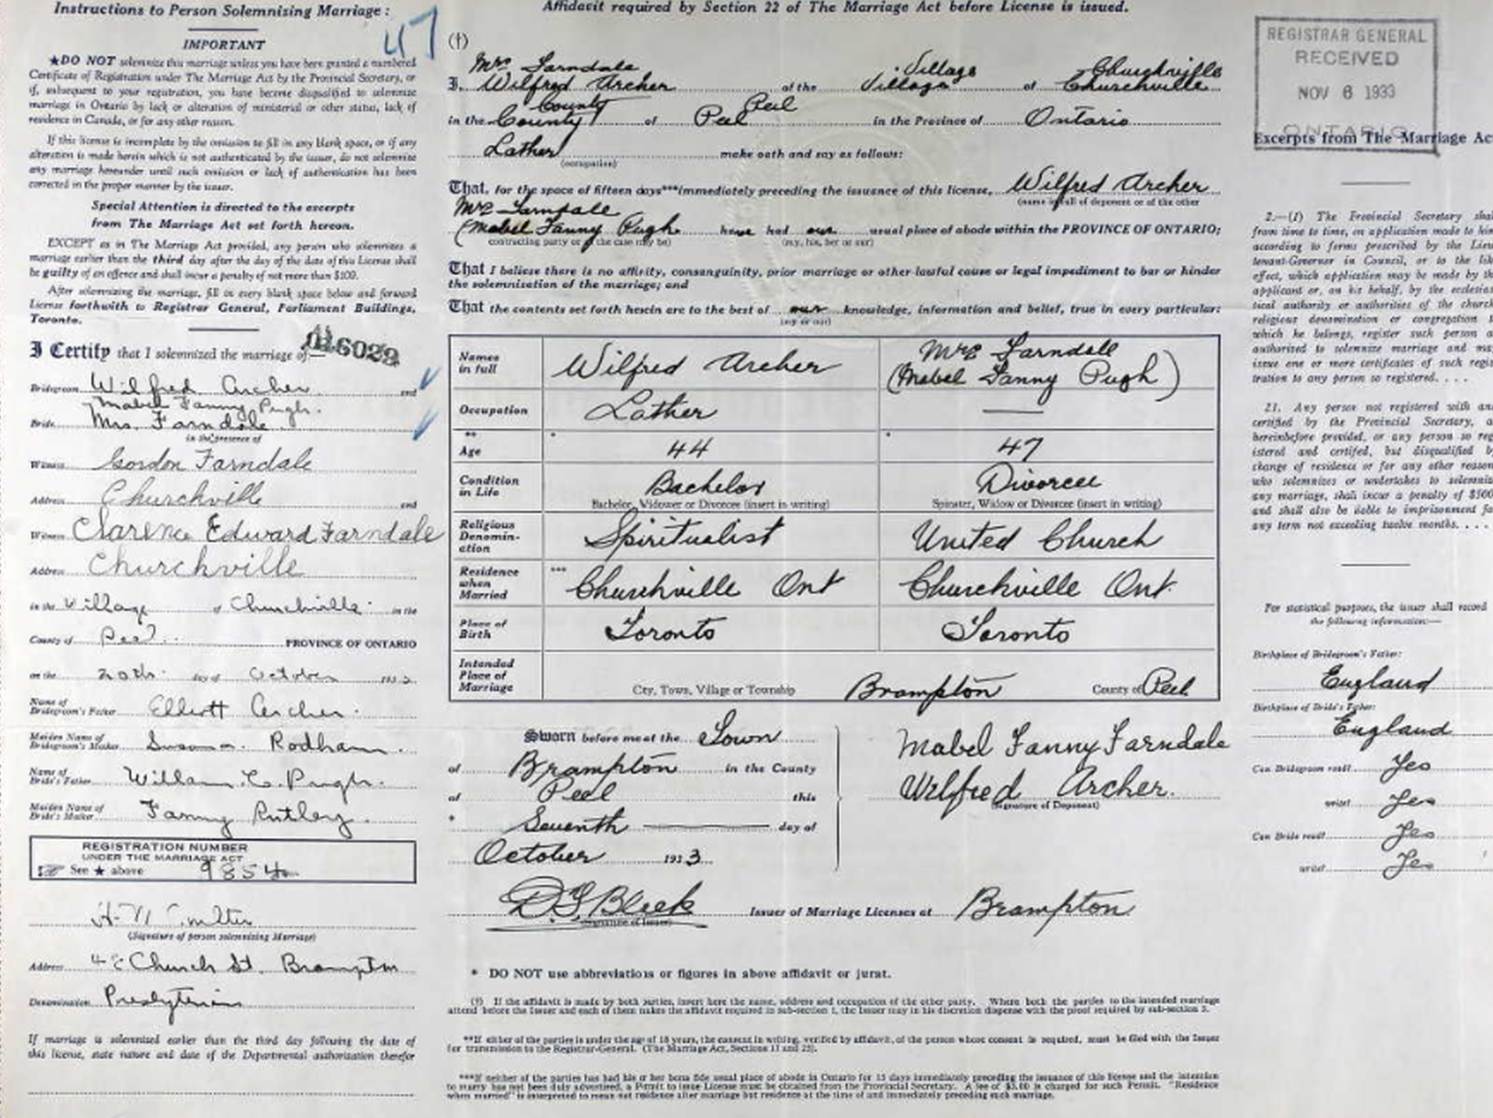 Instructions to Person Solemnizing Marriage:
47
IMPORTANT
★DO NOT solemnize this marriage unless you have been granted a numbered
Certificate of Registration under The Marriage Act by the Provincial Secretary, or
if, subsequent to your registration, you have become disqualified to solemnize
marriage in Ontario by lack or alteration of ministerial or other status, lack of
residence in Canada, or for any other reason.
If this license is incomplete by the omission to fill in any blank space, or if any
alteration is made herein which is not authenticated by the issuer, do not solemnize
any marriage hereunder until such omission or lack of authentication has been
corrected in the proper manner by the issuer.
Special Attention is directed to the excerpts
from The Marriage Act set forth hereon.
EXCEPT as in The Marriage Act provided, any person who solemnizes a
marriage earlier than the third day after the day of the date of this License shall
be guilty of an offence and shall incur a penalty of not more than $100.
After solemnizing the marriage, fill in every blank space below and forward
License forthwith to Registrar General, Parliament Buildings,
Toronto.
I Certify that I solemnized the marriage of 016029
Bridegroom Wilfred Archer and
Mabel Fanny Pugh.
Bride Mrs. Farndale
in the presence of
Witness Gordon Farndale
Address Churchville and
Witness Clarence Edward Farndale
Address Churchville
in the Village of Churchville in the
County of Peel PROVINCE OF ONTARIO
on the 20th day of October 193
Name of
Bridegroom's Father Elliott Archer.
Maiden Name of
Bridegroom's Mother Susanna Rodham.
Name of
Bride's Father William C. Pugh.
Maiden Name of
Bride's Mother Fanny Rutley.
REGISTRATION NUMBER
UNDER THE MARRIAGE ACT
See ★ above 9854
H. N. Coulter
(Signature of person solemnizing Marriage)
Address Church St. Brampton
Denomination Presbyterian
If marriage is solemnized earlier than the third day following the date of
this license, state nature and date of the Departmental authorization therefor
Affidavit required by Section 22 of The Marriage Act before License is issued.
(†)
Mrs Farndale Village Churchville
I, Wilfred Archer of the Village of Churchville
County Peel
in the County of Peel in the Province of Ontario
Lather make oath and say as follows:
(occupation)
That, for the space of fifteen days***immediately preceding the issuance of this license, Wilfred Archer
(name in full of deponent or of the other
Mrs Farndale
(Mabel Fanny Pugh have had our usual place of abode within the PROVINCE OF ONTARIO;
contracting party or as the case may be) (my, his, her or our)
That I believe there is no affinity, consanguinity, prior marriage or other lawful cause or legal impediment to bar or hinder
the solemnization of the marriage; and
That the contents set forth herein are to the best of our knowledge, information and belief, true in every particular:
(my or our)
Names
in full Wilfred Archer Mrs Farndale
(Mabel Fanny Pugh)
Occupation Lather
**
Age 44 47
Condition
in Life Bachelor Divorcee
Bachelor, Widower or Divorcee (insert in writing) Spinster, Widow or Divorcee (insert in writing)
Religious
Denomin-
ation Spiritualist United Church
Residence
when
Married *** Churchville Ont Churchville Ont.
Place of
Birth Toronto Toronto
Intended
Place of
Marriage City, Town, Village or Township Brampton County of Peel
Sworn before me at the Town
of Brampton in the County
of Peel this
* Seventh day of
October 1933
Mabel Fanny Farndale
Wilfred Archer.
(Signature of Deponent)
D.G. Bleek Issuer of Marriage Licenses at Brampton
(Signature of Issuer)
* DO NOT use abbreviations or figures in above affidavit or jurat.
(†) If the affidavit is made by both parties, insert here the name, address and occupation of the other party. Where both the parties to the intended marriage
attend before the Issuer and each of them makes the affidavit required in sub-section 1, the Issuer may in his discretion dispense with the proof required by sub-section 3.
**If either of the parties is under the age of 18 years, the consent in writing, verified by affidavit, of the person whose consent is required, must be filed with the Issuer
for transmission to the Registrar-General. (The Marriage Act, Sections 17 and 25).
***If neither of the parties has had his or her bona fide usual place of abode in Ontario for 15 days immediately preceding the issuance of this license and the intention
to marry has not been duly advertised, a Permit to issue License must be obtained from the Provincial Secretary. A fee of $5.00 is charged for such Permit. "Residence
when married" is interpreted to mean not residence after marriage but residence at the time of and immediately preceding such marriage.
REGISTRAR GENERAL
RECEIVED
NOV 6 1933
ONTARIO
Excerpts from The Marriage Ac
2.—(1) The Provincial Secretary shal
from time to time, on application made to him
according to forms prescribed by the Lieu
tenant-Governor in Council, or to the lik
effect, which application may be made by th
applicant or, on his behalf, by the ecclesias
tical authority or authorities of the church
religious denomination or congregation t
which he belongs, register such person a
authorized to solemnize marriage and may
issue one or more certificates of such regis
tration to any person so registered. . . .
21. Any person not registered with and
certified by the Provincial Secretary, a
hereinbefore provided, or any person so reg
istered and certified, but disqualified by
change of residence or for any other reason
who solemnizes or undertakes to solemnize
any marriage, shall incur a penalty of $500
and shall also be liable to imprisonment for
any term not exceeding twelve months. . . .
For statistical purposes, the issuer shall record
the following information:—
Birthplace of Bridegroom's Father:
England
Birthplace of Bride's Father:
England
Can Bridegroom read? Yes
write? Yes
Can Bride read? Yes
write? Yes